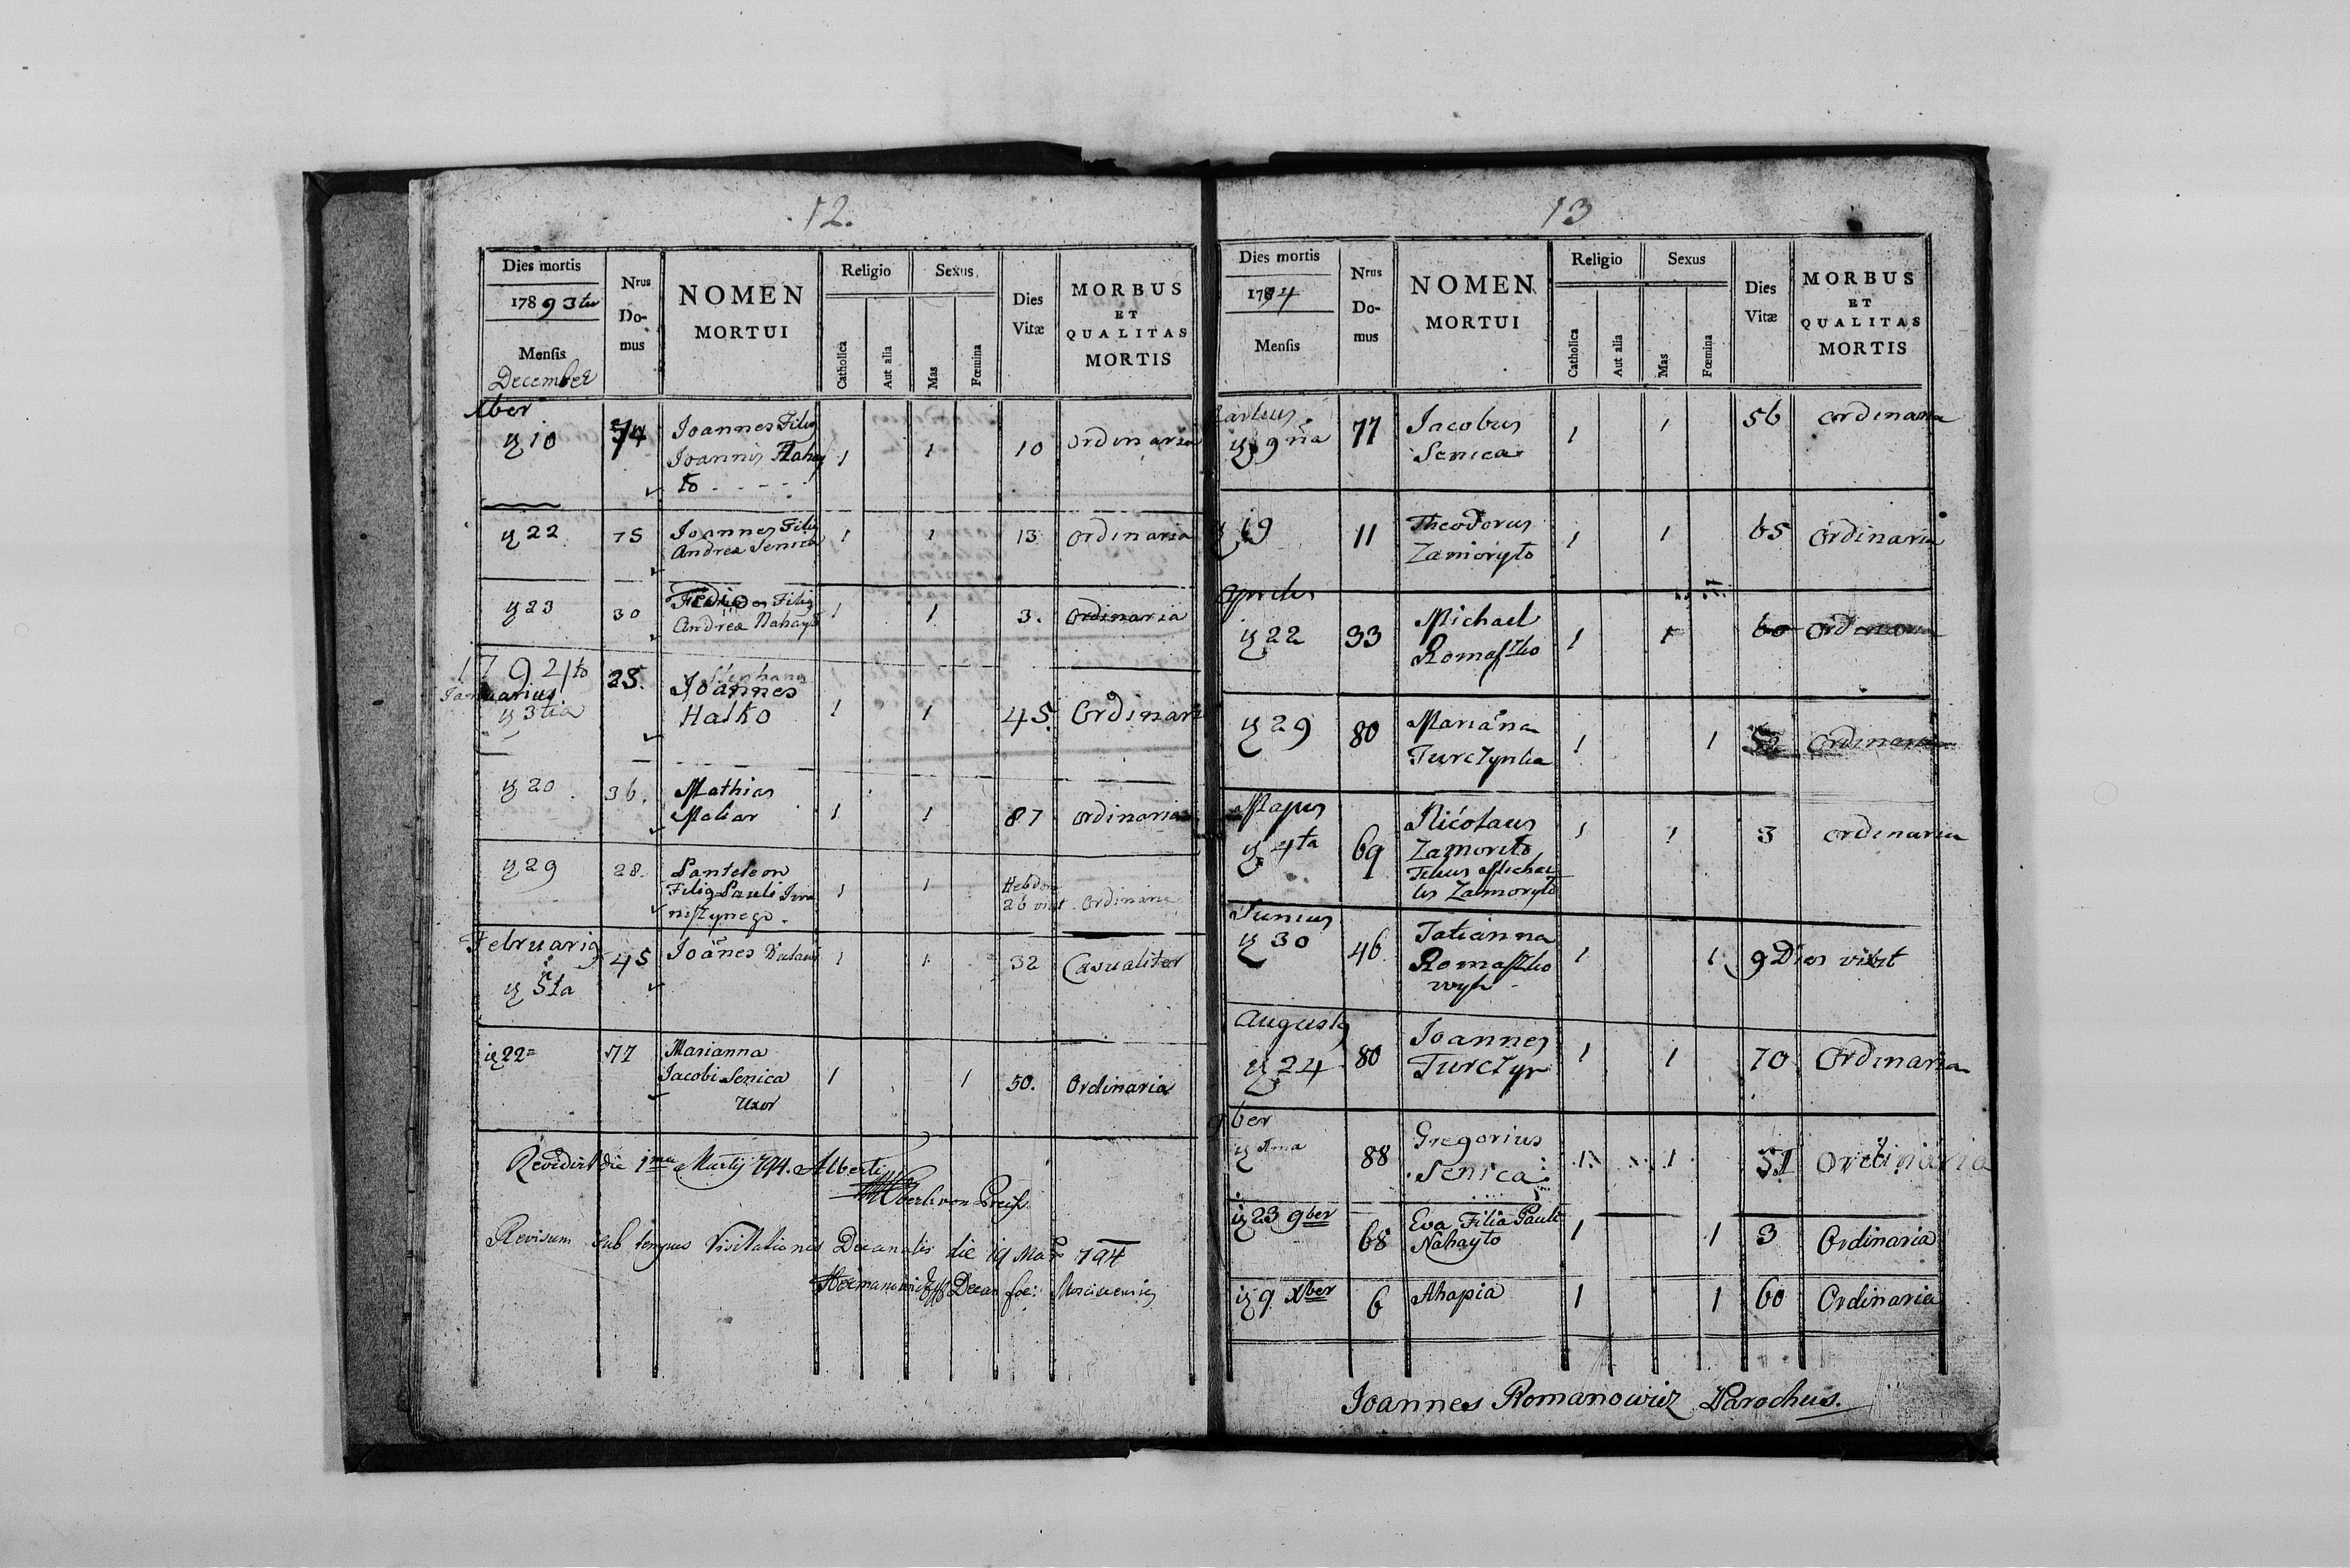 12.
Dies mortis
1789 3tu
Mensis
December
Nrus
Do-
mus
NOMEN
MORTUI
Religio
Catholica
Aut alia
Sexus
Mas
Fœmina
Dies
Vitæ
MORBUS
ET
QUALITAS
MORTIS
Xber
10 74 Joannes Filig 1 1 10 Ordinaria
Joannis Nahay
to
22 75 Joannes Filig 1 1 13 Ordinaria
Andrea Senica
23 30 Filig 1 1 3. Ordinaria
Andrea Nahayto
1794to
Januarius
3tia 25. Joannes 1 1 45 Ordinaria
Halko
20 36. Mathias 1 1 87 Ordinaria
Maliar
29 28. Panteleon 1 1 Hebdom
Filig Pauli Iwa 26 vixit Ordinaria
niszynego
Februarig
5ta 45 Joānes 1 1 32 Casualiter
22 77 Marianna 1 1 50. Ordinaria
Jacobi Senica
Uxor
Revidirt die 1ma Martij 794. Alberti
Revisum sub tempus Visitationis Decanalis die 19 Maÿ 794
Decan
13
Dies mortis
1794
Mensis
Nrus
Do-
mus
NOMEN
MORTUI
Religio
Catholica
Aut alia
Sexus
Mas
Fœmina
Dies
Vitæ
MORBUS
ET
QUALITAS
MORTIS
Martius
9na 77 Jacobus 1 1 56 Ordinaria
Senica
19 11 Theodorus 1 1 65 Ordinaria
Zamoryto
Aprilis
22 33 Michael 1 1 60 Ordinaria
Romaszko
29 80 Mariāna 1 1 52 Ordinaria
Turczynka
Majus
4ta 69 Nicolaus 1 1 3 Ordinaria
Zamorito
Filius Michae
lis Zamoryto
Junius
30 46 Tatianna 1 1 9 Dies vixit
Romaszko
wych
Augustg
24 80 Joannes 1 1 70 Ordinaria
Turczyn
9ber
88 Gregorius 1 1 51 Ordinaria
Senica
23 9ber 68 Eva Filia Pauli 1 1 3 Ordinaria
Nahayto
9 Xber 6 Ahapia 1 1 60 Ordinaria
Joannes Romanowicz Parochus.